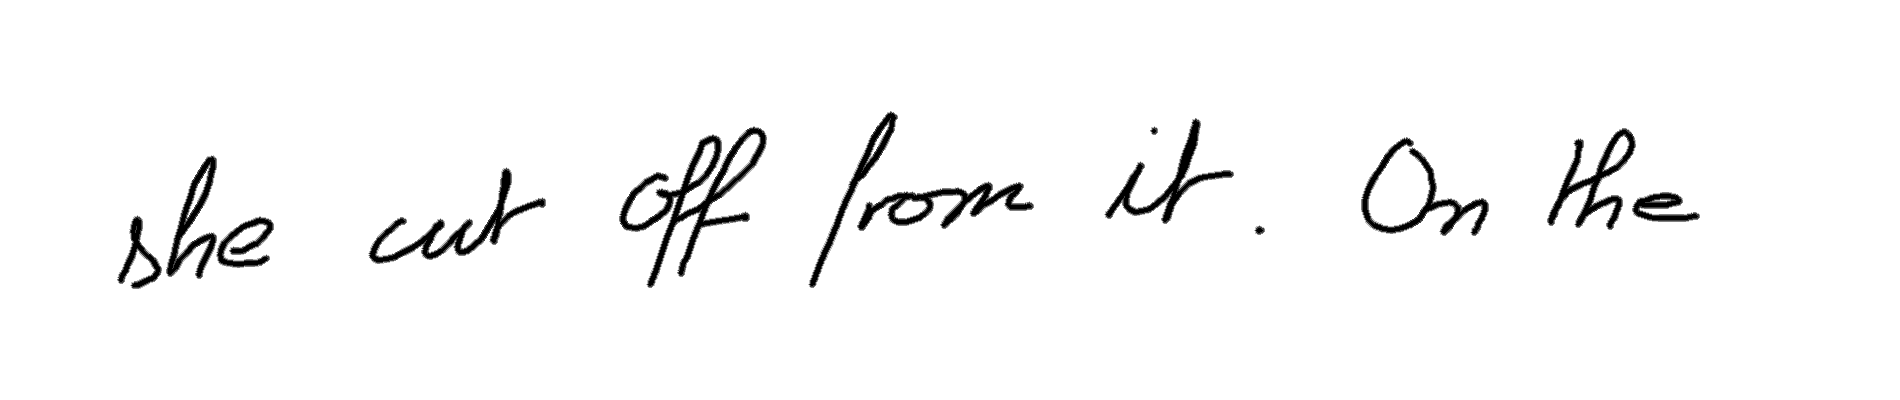 she cut off from it. On the